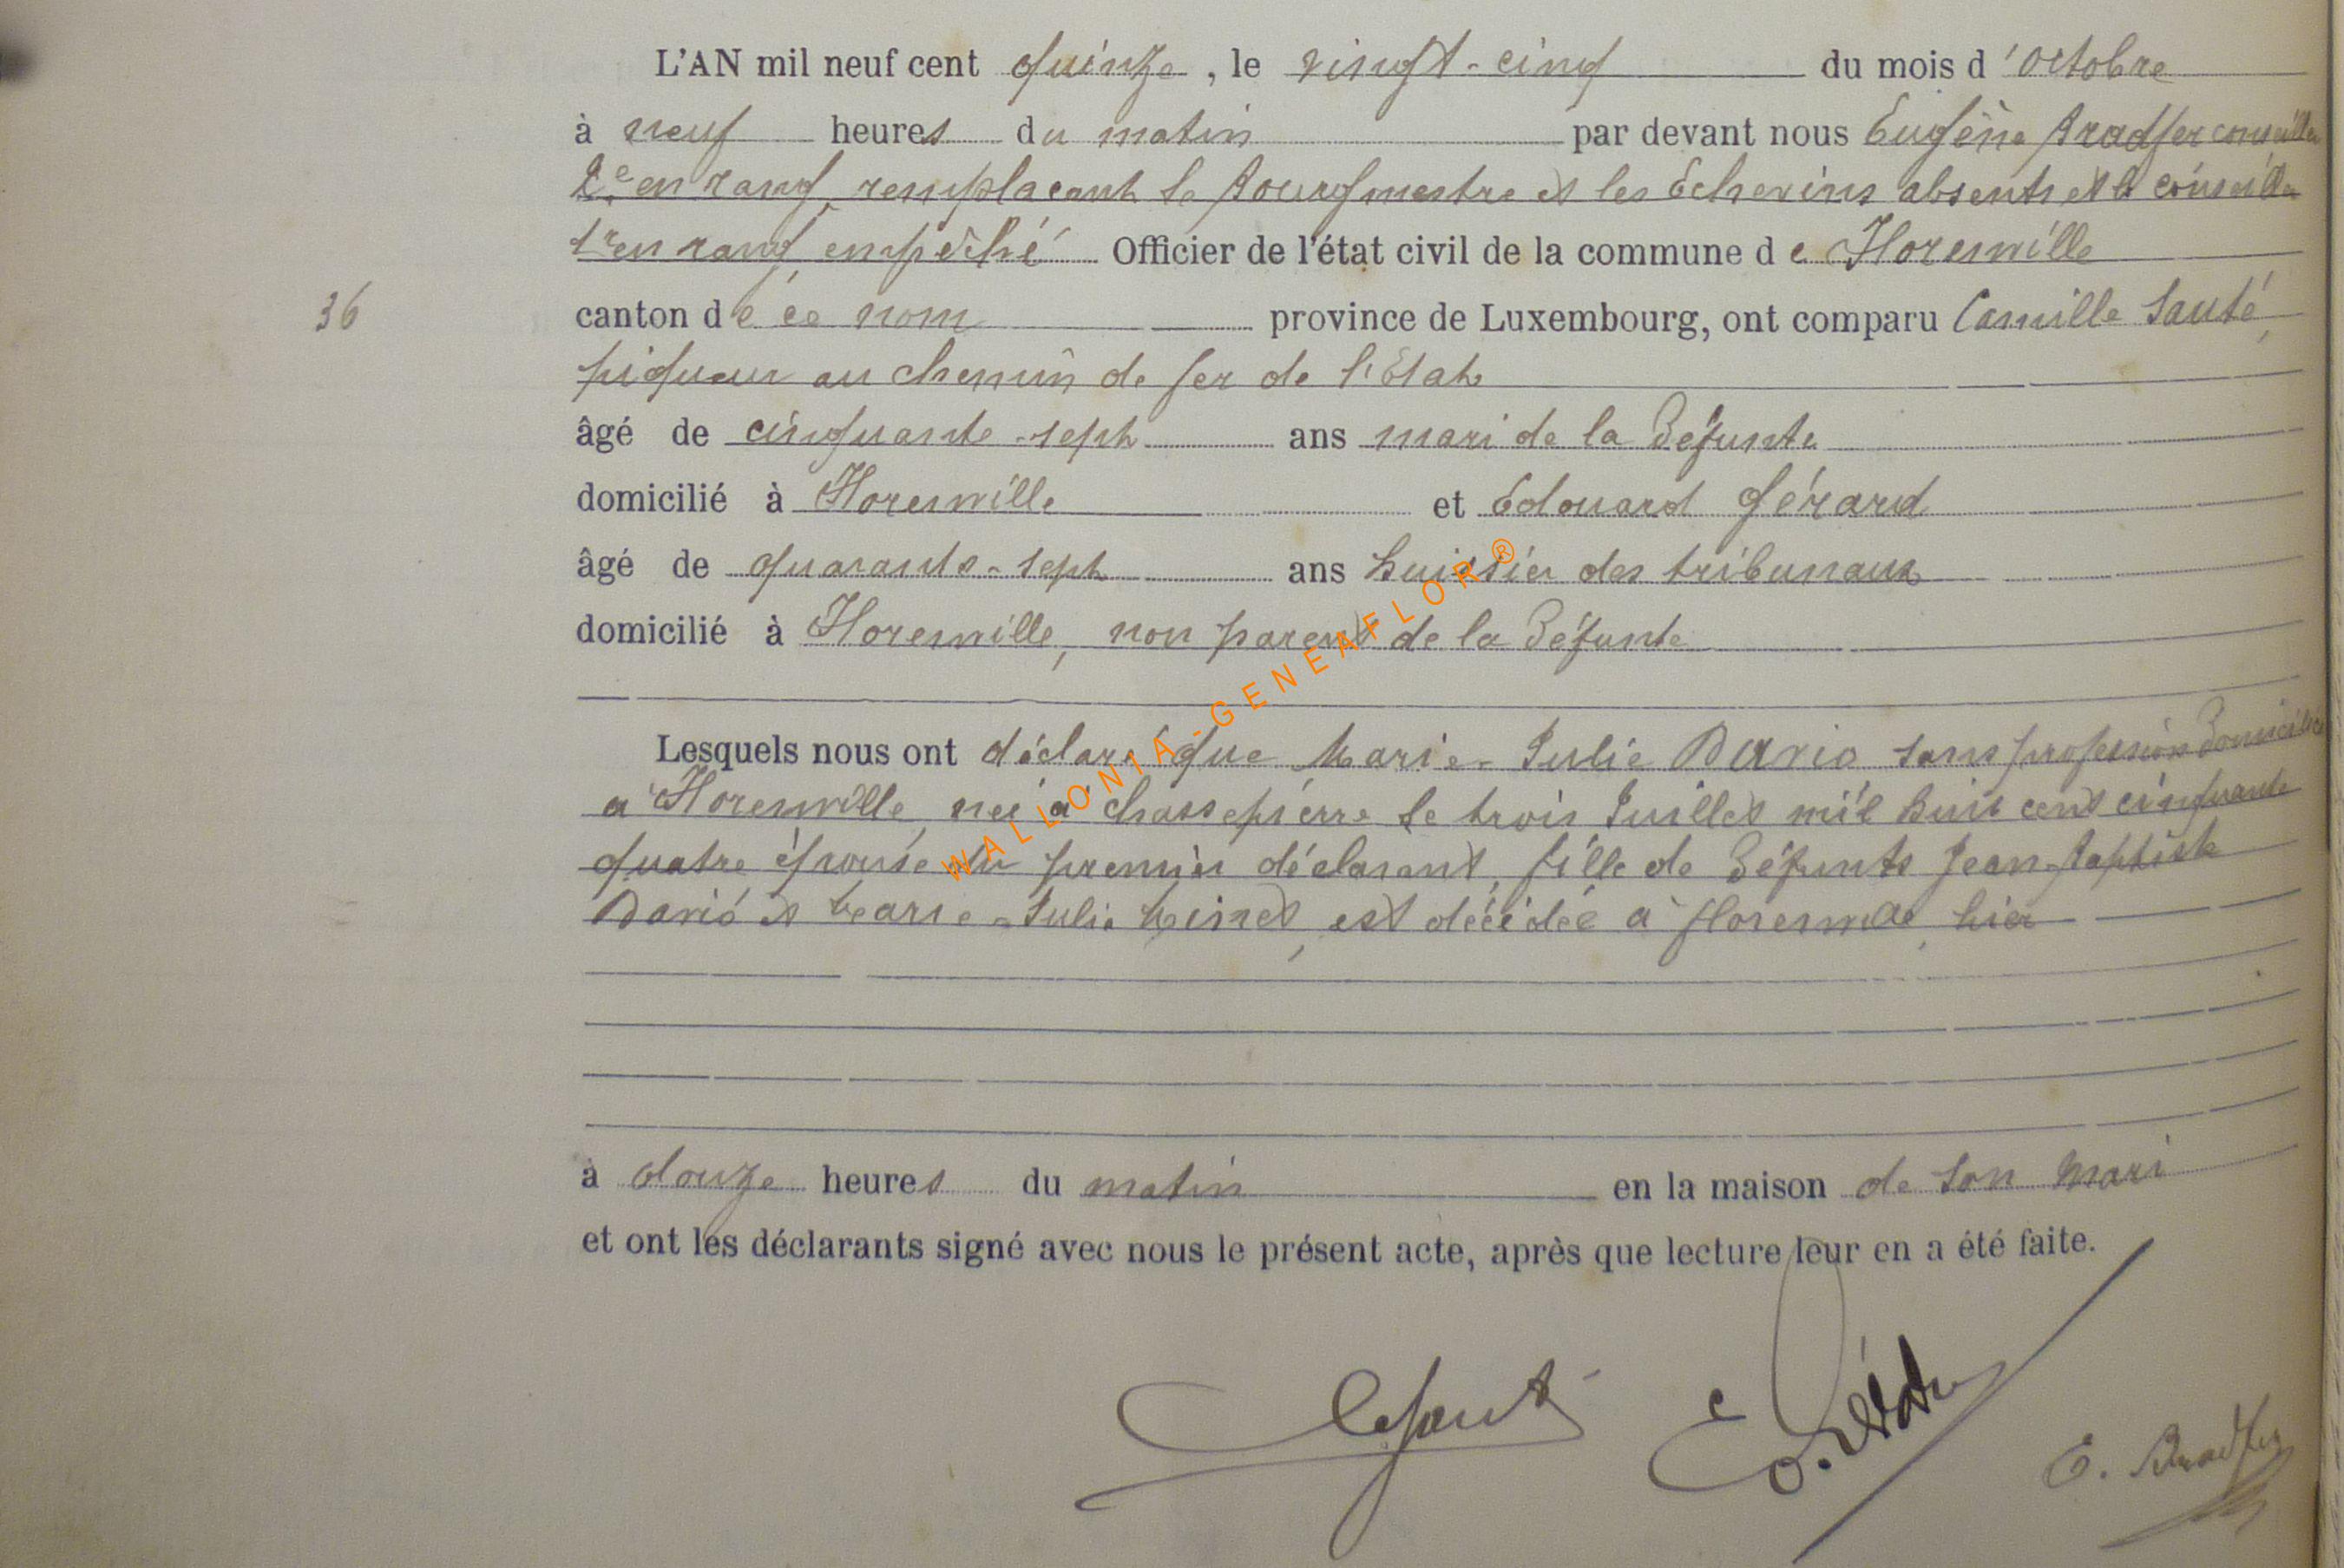 L'AN mil neuf cent quinze, le vingt-cinq du mois d'octobre
à neuf heures du matin par devant nous Eugène Bradfer conseiller
2e en rang, remplaçant le Bourgmestre et les Echevins absents et le conseiller
1er en rang empêché Officier de l'état civil de la commune de Florenville
36
canton de ce nom province de Luxembourg, ont comparu Camille Sauté,
piqueur au chemin de fer de l'Etat
âgé de cinquante-sept ans mari de la défunte
domicilié à Florenville et Edouard Gérard
âgé de quarante-sept ans huissier des tribunaux
domicilié à Florenville, non parent de la défunte
Lesquels nous ont déclaré que Marie-Julie sans profession domiciliée
à Florenville, née à Chassepierre le trois Juillet mil huit cent cinquante
quatre épouse du premier déclarant, fille de défunts Jean-Baptiste
et Marie-Julie, est décédée à Florenville, hier
à douze heures du matin en la maison de son mari
et ont les déclarants signé avec nous le présent acte, après que lecture leur en a été faite.
C Sauté E. Gérard E. Bradfer
WALLONIA-GENEAFLOR®